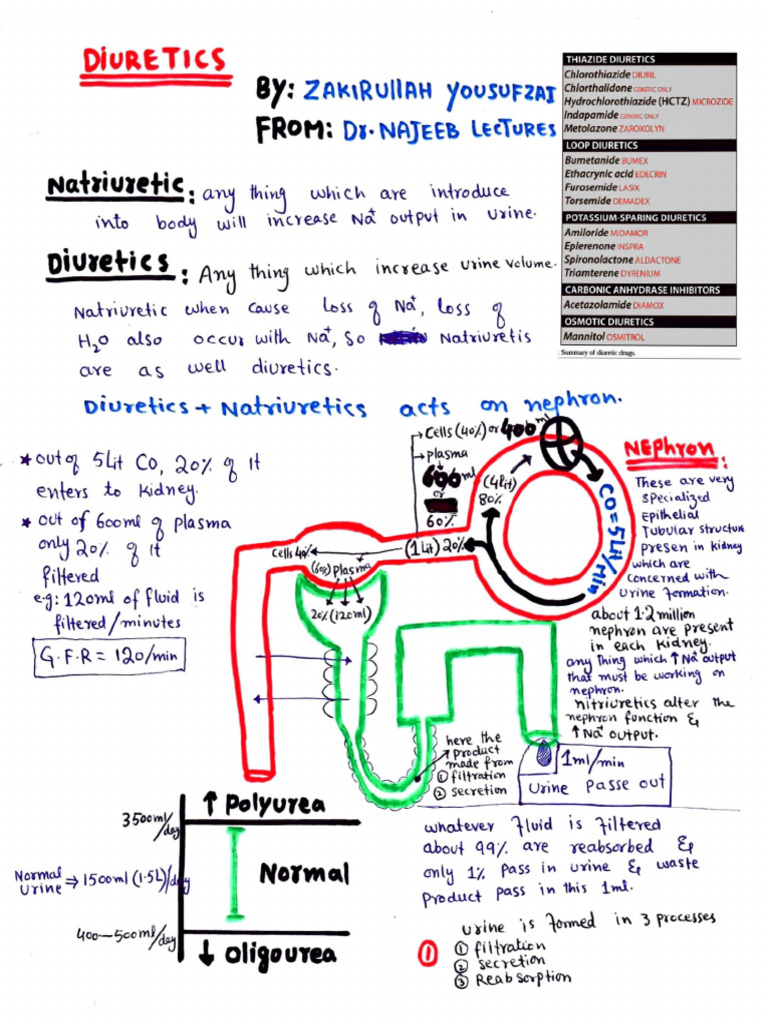 DIURETICS
BY: ZAKIRULLAH YOUSUFZAI
FROM: Dr. NAJEEB LECTURES
THIAZIDE DIURETICS
Chlorothiazide DIURIL
Chlorthalidone GENERIC ONLY
Hydrochlorothiazide (HCTZ) MICROZIDE
Indapamide GENERIC ONLY
Metolazone ZAROXOLYN
LOOP DIURETICS
Bumetanide BUMEX
Ethacrynic acid EDECRIN
Furosemide LASIX
Torsemide DEMADEX
POTASSIUM-SPARING DIURETICS
Amiloride MIDAMOR
Eplerenone INSPRA
Spironolactone ALDACTONE
Triamterene DYRENIUM
CARBONIC ANHYDRASE INHIBITORS
Acetazolamide DIAMOX
OSMOTIC DIURETICS
Mannitol OSMITROL
Summary of diuretic drugs.
Natriuretic: any thing which are introduce
into body will increase Na+ output in urine.
Diuretics: Any thing which increase urine volume.
Natriuretic when cause loss of Na+, loss of
H2O also occur with Na+, so Natriuretis
are as well diuretics.
Diuretics + Natriuretics acts on nephron.
* out of 5Lit CO, 20% of it
enters to kidney.
* out of 600ml of plasma
only 20% of it
filtered
e.g: 120ml of fluid is
filtered/minutes
G.F.R = 120/min
→ Cells (40%) or 400 ml
→ plasma
600 ml
or
60%
(4Lit)
80%
CO = 5Lit/min
(1Lit) 20%
Cells 40%
(60%) plasma
20% (120ml)
NEphron:
These are very
specialized
Epithelial
Tubular structure
presen in kidney
which are
concerned with
urine formation.
about 1.2 million
nephron are present
in each kidney.
any thing which ↑ Na+ output
that must be working on
nephron.
nitriuretics alter the
nephron function &
↑ Na+ output.
here the
product
made from
① filtration
② secretion
1ml/min
urine passe out
3500ml/day
↑ Polyurea
Normal Urine ⇒ 1500ml (1.5L)/day
Normal
400—500ml/day
↓ oligourea
whatever fluid is filtered
about 99% are reabsorbed &
only 1% pass in urine & waste
product pass in this 1ml.
urine is formed in 3 processes
① filtration
② secretion
③ Reabsorption
①